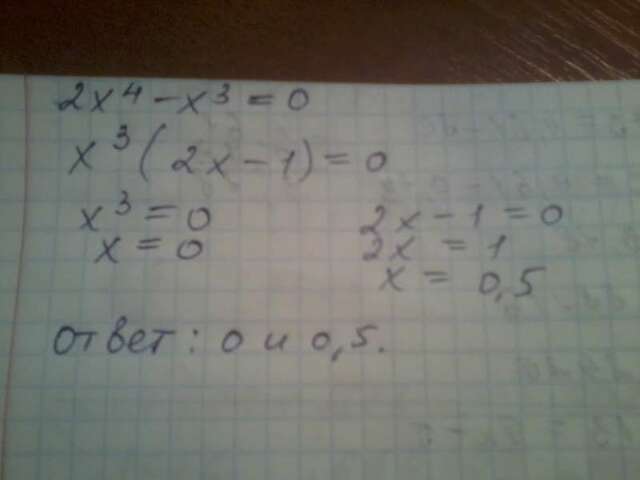 2x⁴ - x³ = 0
x³(2x - 1) = 0
x³ = 0 2x - 1 = 0
x = 0 2x = 1
x = 0,5
ответ: 0 и 0,5.